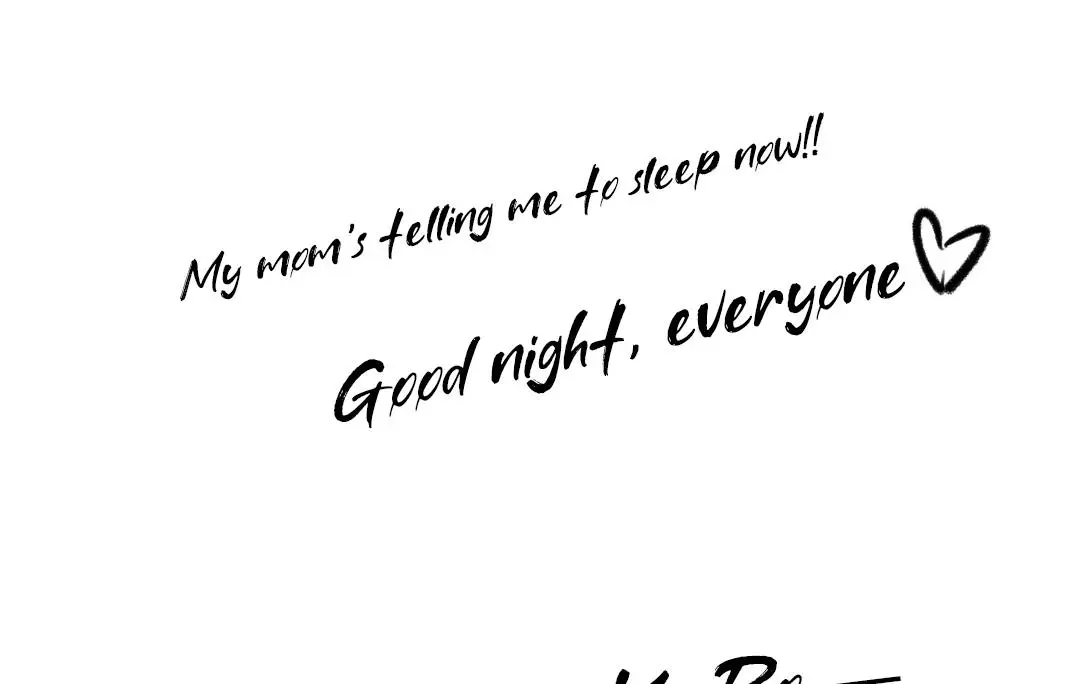 My mom's telling me to sleep now!!
Good night, everyone